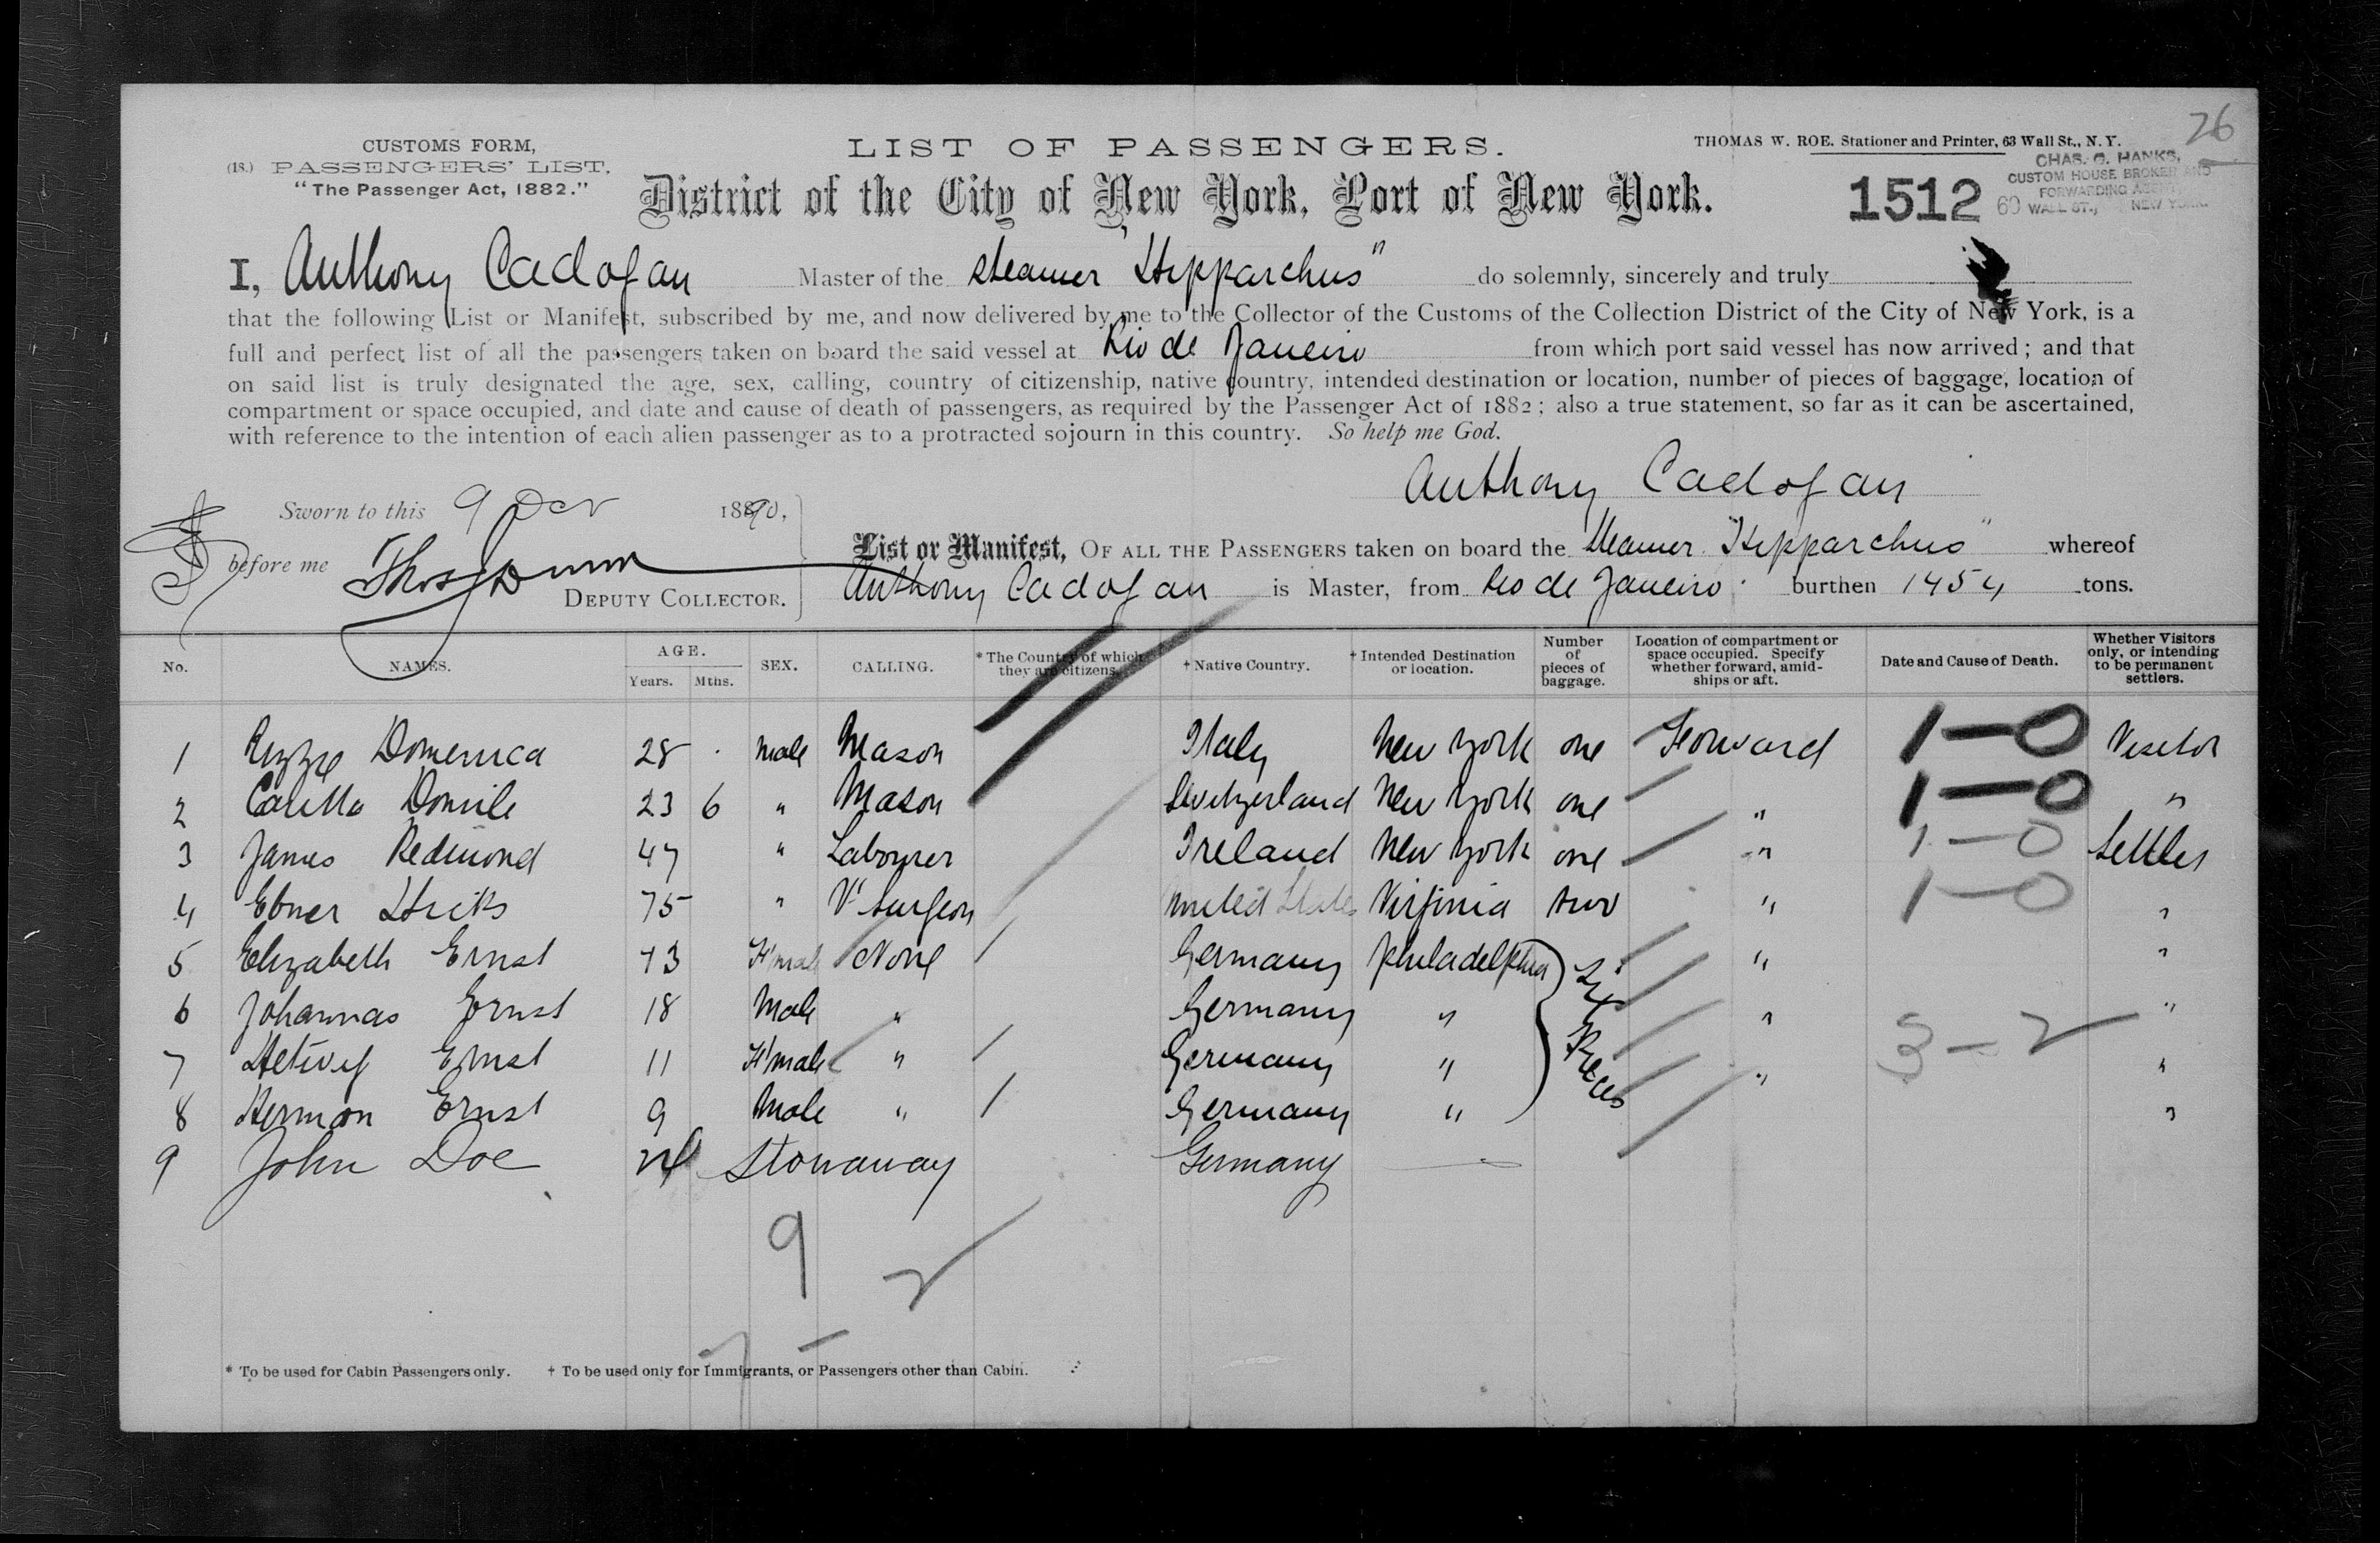 26
CUSTOMS FORM,
(18.) PASSENGERS' LIST,
"The Passenger Act, 1882."
LIST OF PASSENGERS.
District of the City of New York, Port of New York.
THOMAS W. ROE. Stationer and Printer, 63 Wall St., N. Y.
1512
CHAS. G. HANKS,
CUSTOM HOUSE BROKER AND
FORWARDING AGENT,
60 WALL ST., NEW YORK.
I, Anthony Cadogan Master of the steamer "Hipparchus" do solemnly, sincerely and truly
that the following List or Manifest, subscribed by me, and now delivered by me to the Collector of the Customs of the Collection District of the City of New York, is a
full and perfect list of all the passengers taken on board the said vessel at Rio de Janeiro from which port said vessel has now arrived; and that
on said list is truly designated the age, sex, calling, country of citizenship, native country, intended destination or location, number of pieces of baggage, location of
compartment or space occupied, and date and cause of death of passengers, as required by the Passenger Act of 1882; also a true statement, so far as it can be ascertained,
with reference to the intention of each alien passenger as to a protracted sojourn in this country. So help me God.
Anthony Cadogan
Sworn to this 9 1890,
before me Thos Dunn
DEPUTY COLLECTOR.
List or Manifest, OF ALL THE PASSENGERS taken on board the Steamer "Hipparchus" whereof
Anthony Cadogan is Master, from Rio de Janeiro burthen 1454 tons.
No. NAMES. AGE. Years. Mths. SEX. CALLING. * The Country of which they are citizens. † Native Country. † Intended Destination or location. Number of pieces of baggage. Location of compartment or space occupied. Specify whether forward, amid-ships or aft. Date and Cause of Death. Whether Visitors only, or intending to be permanent settlers.
1 Domenica 28 male Mason Italy New York one Forward 1-0 Visitor
2 23 6 " Mason Switzerland New York one " 1-0 "
3 James Redmond 47 " Labourer Ireland New York one " 1-0 Settler
4 Ebner 75 " V Surgeon United States Virginia two " 1-0 "
5 Elizabeth Ernst 43 F'male None Germany Philadelphia Six Pieces " "
6 Johannas Ernst 18 Male " Germany " " "
7 Ernst 11 F'male " Germany " " 3-2 "
8 Herman Ernst 9 Male " Germany " "
9 John Doe Stowaway Germany
9
* To be used for Cabin Passengers only. † To be used only for Immigrants, or Passengers other than Cabin.